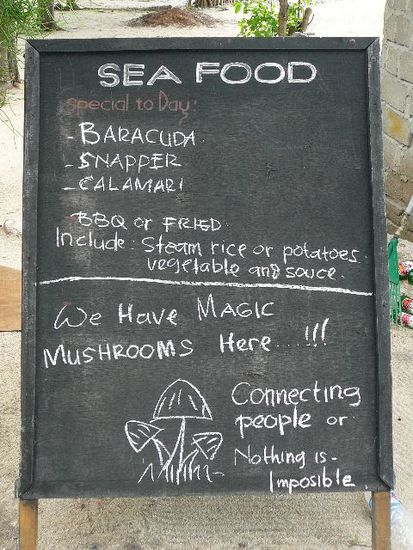 SEA FOOD
special to Day:
- BARACUDA
- SNAPPER
- CALAMARI
- BBQ or FRIED.
Include: Steam rice or potatoes.
vegetable and sauce.
We Have MAGIC
MUSHROOMS Here....!!!
Connecting
people or
Nothing is -
Imposible